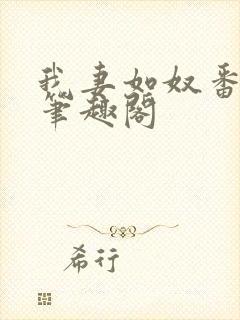 我妻如奴番
笔趣阁
希行